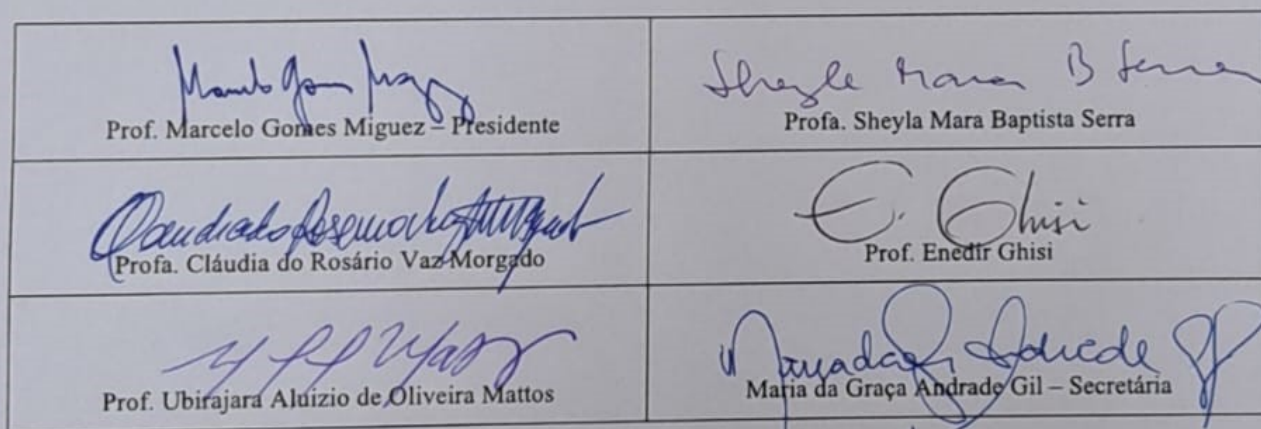 Sheyla Mara B Serra
Prof. Marcelo Gomes Miguez – Presidente
Profa. Sheyla Mara Baptista Serra
E. Ghisi
Profa. Cláudia do Rosário Vaz Morgado
Prof. Enedir Ghisi
Prof. Ubirajara Aluizio de Oliveira Mattos
Maria da Graça Andrade Gil – Secretária